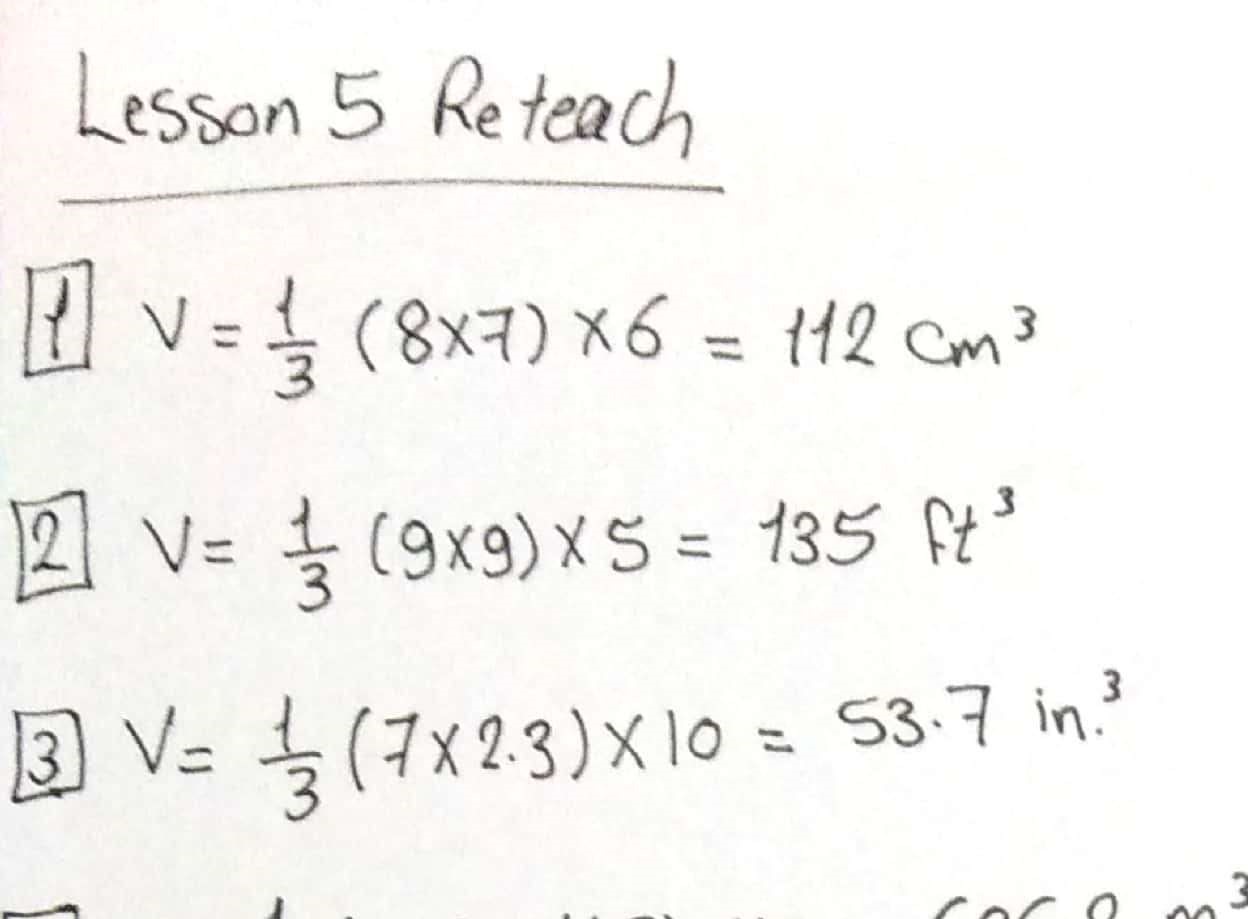 Lesson 5 Reteach
1 V = 1/3 (8x7) x 6 = 112 cm³
2 V = 1/3 (9x9) x 5 = 135 ft³
3 V = 1/3 (7x2.3) x 10 = 53.7 in.³